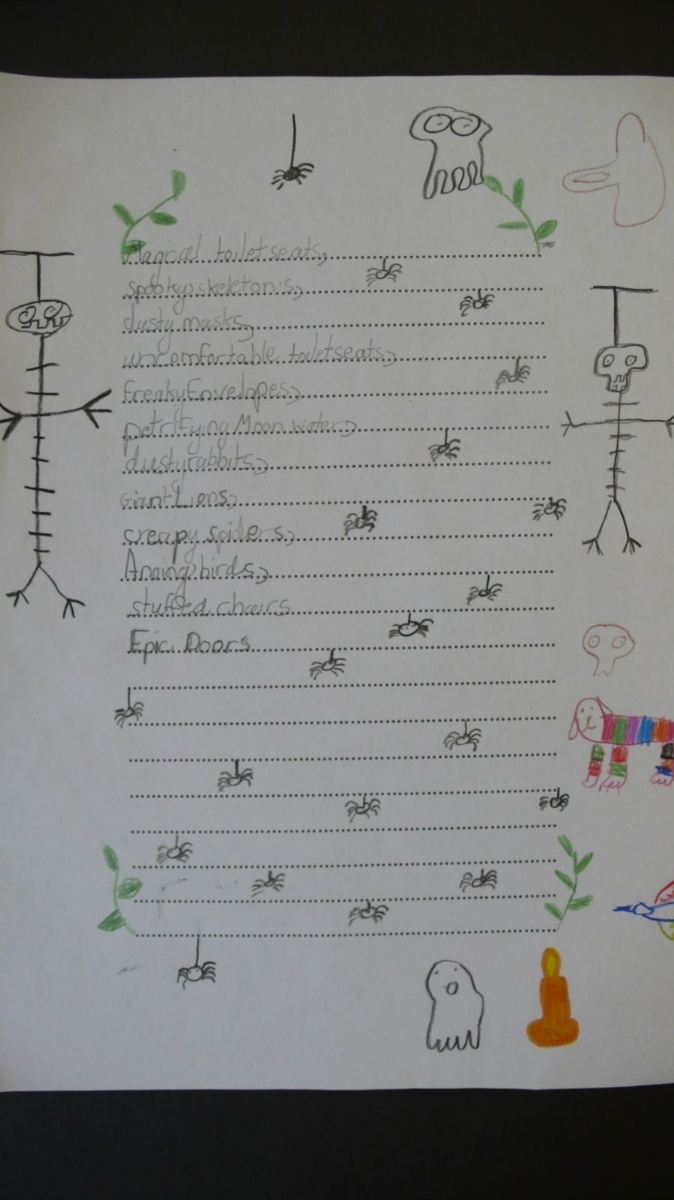 Magical toiletseats,
spooky skeletonis,
dusty masks,
uncomfortable toiletseats,
freaky Envelopes,
petrifying Moon water,
dusty rabbits,
Giant Lions,
creapy spiders,
birds,
stuffed chairs
Epic Doors